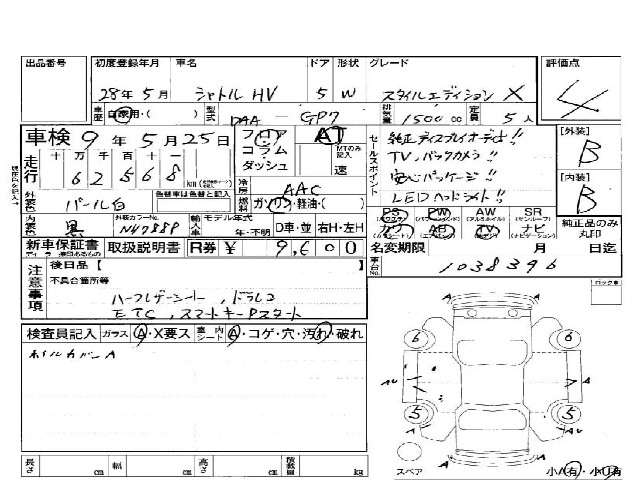 出品番号 初度登録年月 車名 ドア 形状 グレード 評価点
28年5月 シャトル HV 5 W スタイルエディション X 4
車歴 自家用・( ) 型式 DAA - GP7 排気量 1500 cc 定員 5人
車検 9年5月25日 フロア AT セールスポイント 純正ディスプレイオーディオ!! [外装]
コラム MTのみ記入 TV, バックカメラ!! B
走行 十万千百十一 ダッシュ 速 安心パッケージ!!
62568 km LEDヘッドライト!! [内装]
外装色 パール白 色替車は色替と記入 冷房 AAC B
燃料 ガソリン・軽油・( ) PS PW AW SR 純正品のみ丸印
内装色 黒 外装カラーNo. NH788P 輸入車 モデル年式 年・不明 D車・並 右H・左H カワ AB TV ナビ
新車保証書 取扱説明書 R券 ¥ 9,600 名変期限 月 日迄
注意事項 後日品【 】 車台No. 1038396
不具合箇所等 ロック車
ハーフレザーシート, ドラレコ
ETC, スマートキーPスタート
検査員記入 ガラス A・X要ス 室内シート A・コゲ・穴・汚れ・破れ
ホイルカバーA
6 6
A A
AU
5 5
A A AU
A
長さ cm 幅 cm 高さ cm 積載量 kg スペア 小A有・小U有